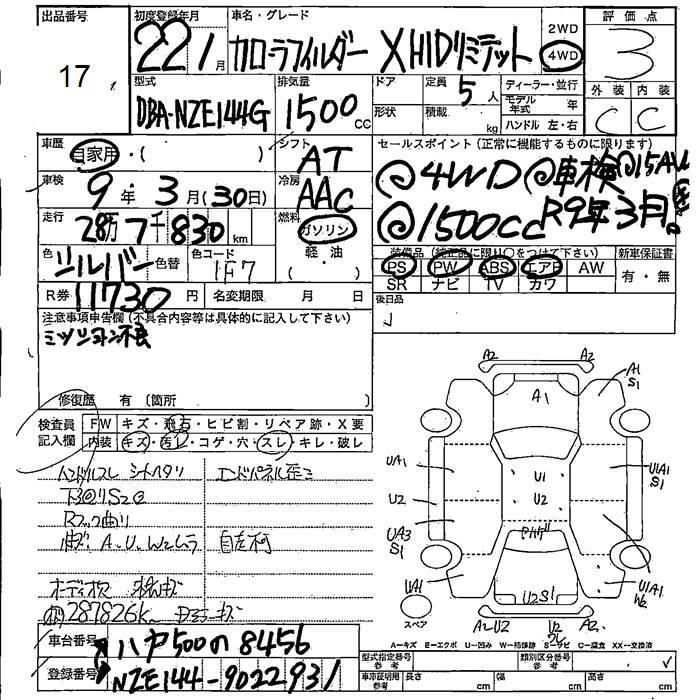 出品番号 初度登録年月 車名・グレード 2WD 評価点
17 22 1月 カローラフィルダー XHIDリミテット 4WD 3
型式 排気量 ドア 定員 5人 ディーラー・並行 外装 内装
DBA-NZE144G 1500cc 形状 積載 kg モデル年式 年 C C
ハンドル 左・右
車歴 自家用・( ) シフト AT セールスポイント(正常に機能するものに限ります)
車検 9年 3月(30日) 冷房 AAC ◎4WD ◎車検 ◎15AW
走行 28万7千830km 燃料 ガソリン ◎1500cc R9年3月
軽・油 ( )
色 シルバー 色替 色コード 1F7 装備品(純正品に限り〇をつけて下さい) 新車保証書
PS PW ABS エアB AW 有・無
SR ナビ TV カワ
R券 11730円 名変期限 月 日 後日品
注意事項申告欄(不具合内容等は具体的に記入して下さい)
ミッション不良
修復歴 有〔箇所 〕
検査員記入欄 FW キズ・飛石・ヒビ割・リペア跡・X要
内装 キズ・汚レ・コゲ・穴・スレ・キレ・破レ
ハンドルスレ シートヘタリ エンドパネル歪ミ
下回りS2◎
Rフック曲リ
自走不可
オーディオ欠
287826K
車台番号 ハヤ500の8456
登録番号 NZE144-9022931
A2 A2
A1
A1
S1
UA1 U1 U1A1
S1
U2 U2
UA3
S1
UA1 U2S1 U1A1
W2
スペア
A2U2 U2 A2
A-キズ E-エクボ U-凹み W-補修跡 S-サビ C-腐食 XX-交換済
型式指定番号 参考 類別区分番号 参考
車庫証明用 参考 長さ cm 幅 cm 高さ cm